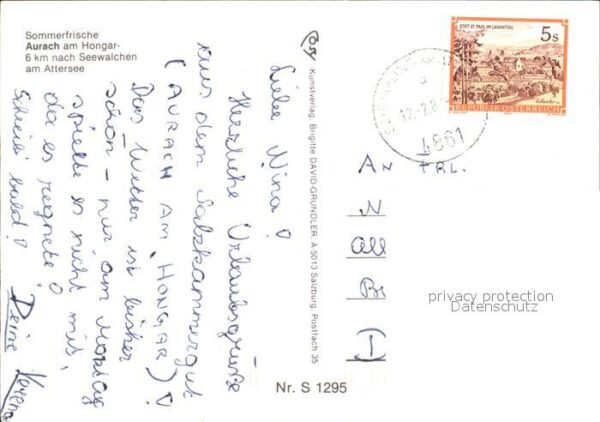 Sommerfrische
Aurach am Hongar-
6 km nach Seewalchen
am Attersee
Liebe Nina!
Herzliche Urlaubsgrüße
aus dem Salzkammergut
(AURACH AM HONGAR)!
Das Wetter ist bisher
schön - nur am Montag
spielte es nicht mit,
da es regnete!
Schreib bald!
Deine Verena
Kunstverlag, Brigitte DAVID-GRÜNDLER A 5013 Salzburg, Postfach 35
Nr. S 1295
STIFT ST. PAUL IM LAVANTTAL
5 S
REPUBLIK ÖSTERREICH
4861
AN FRL.
N
all
Br
D
privacy protection
Datenschutz